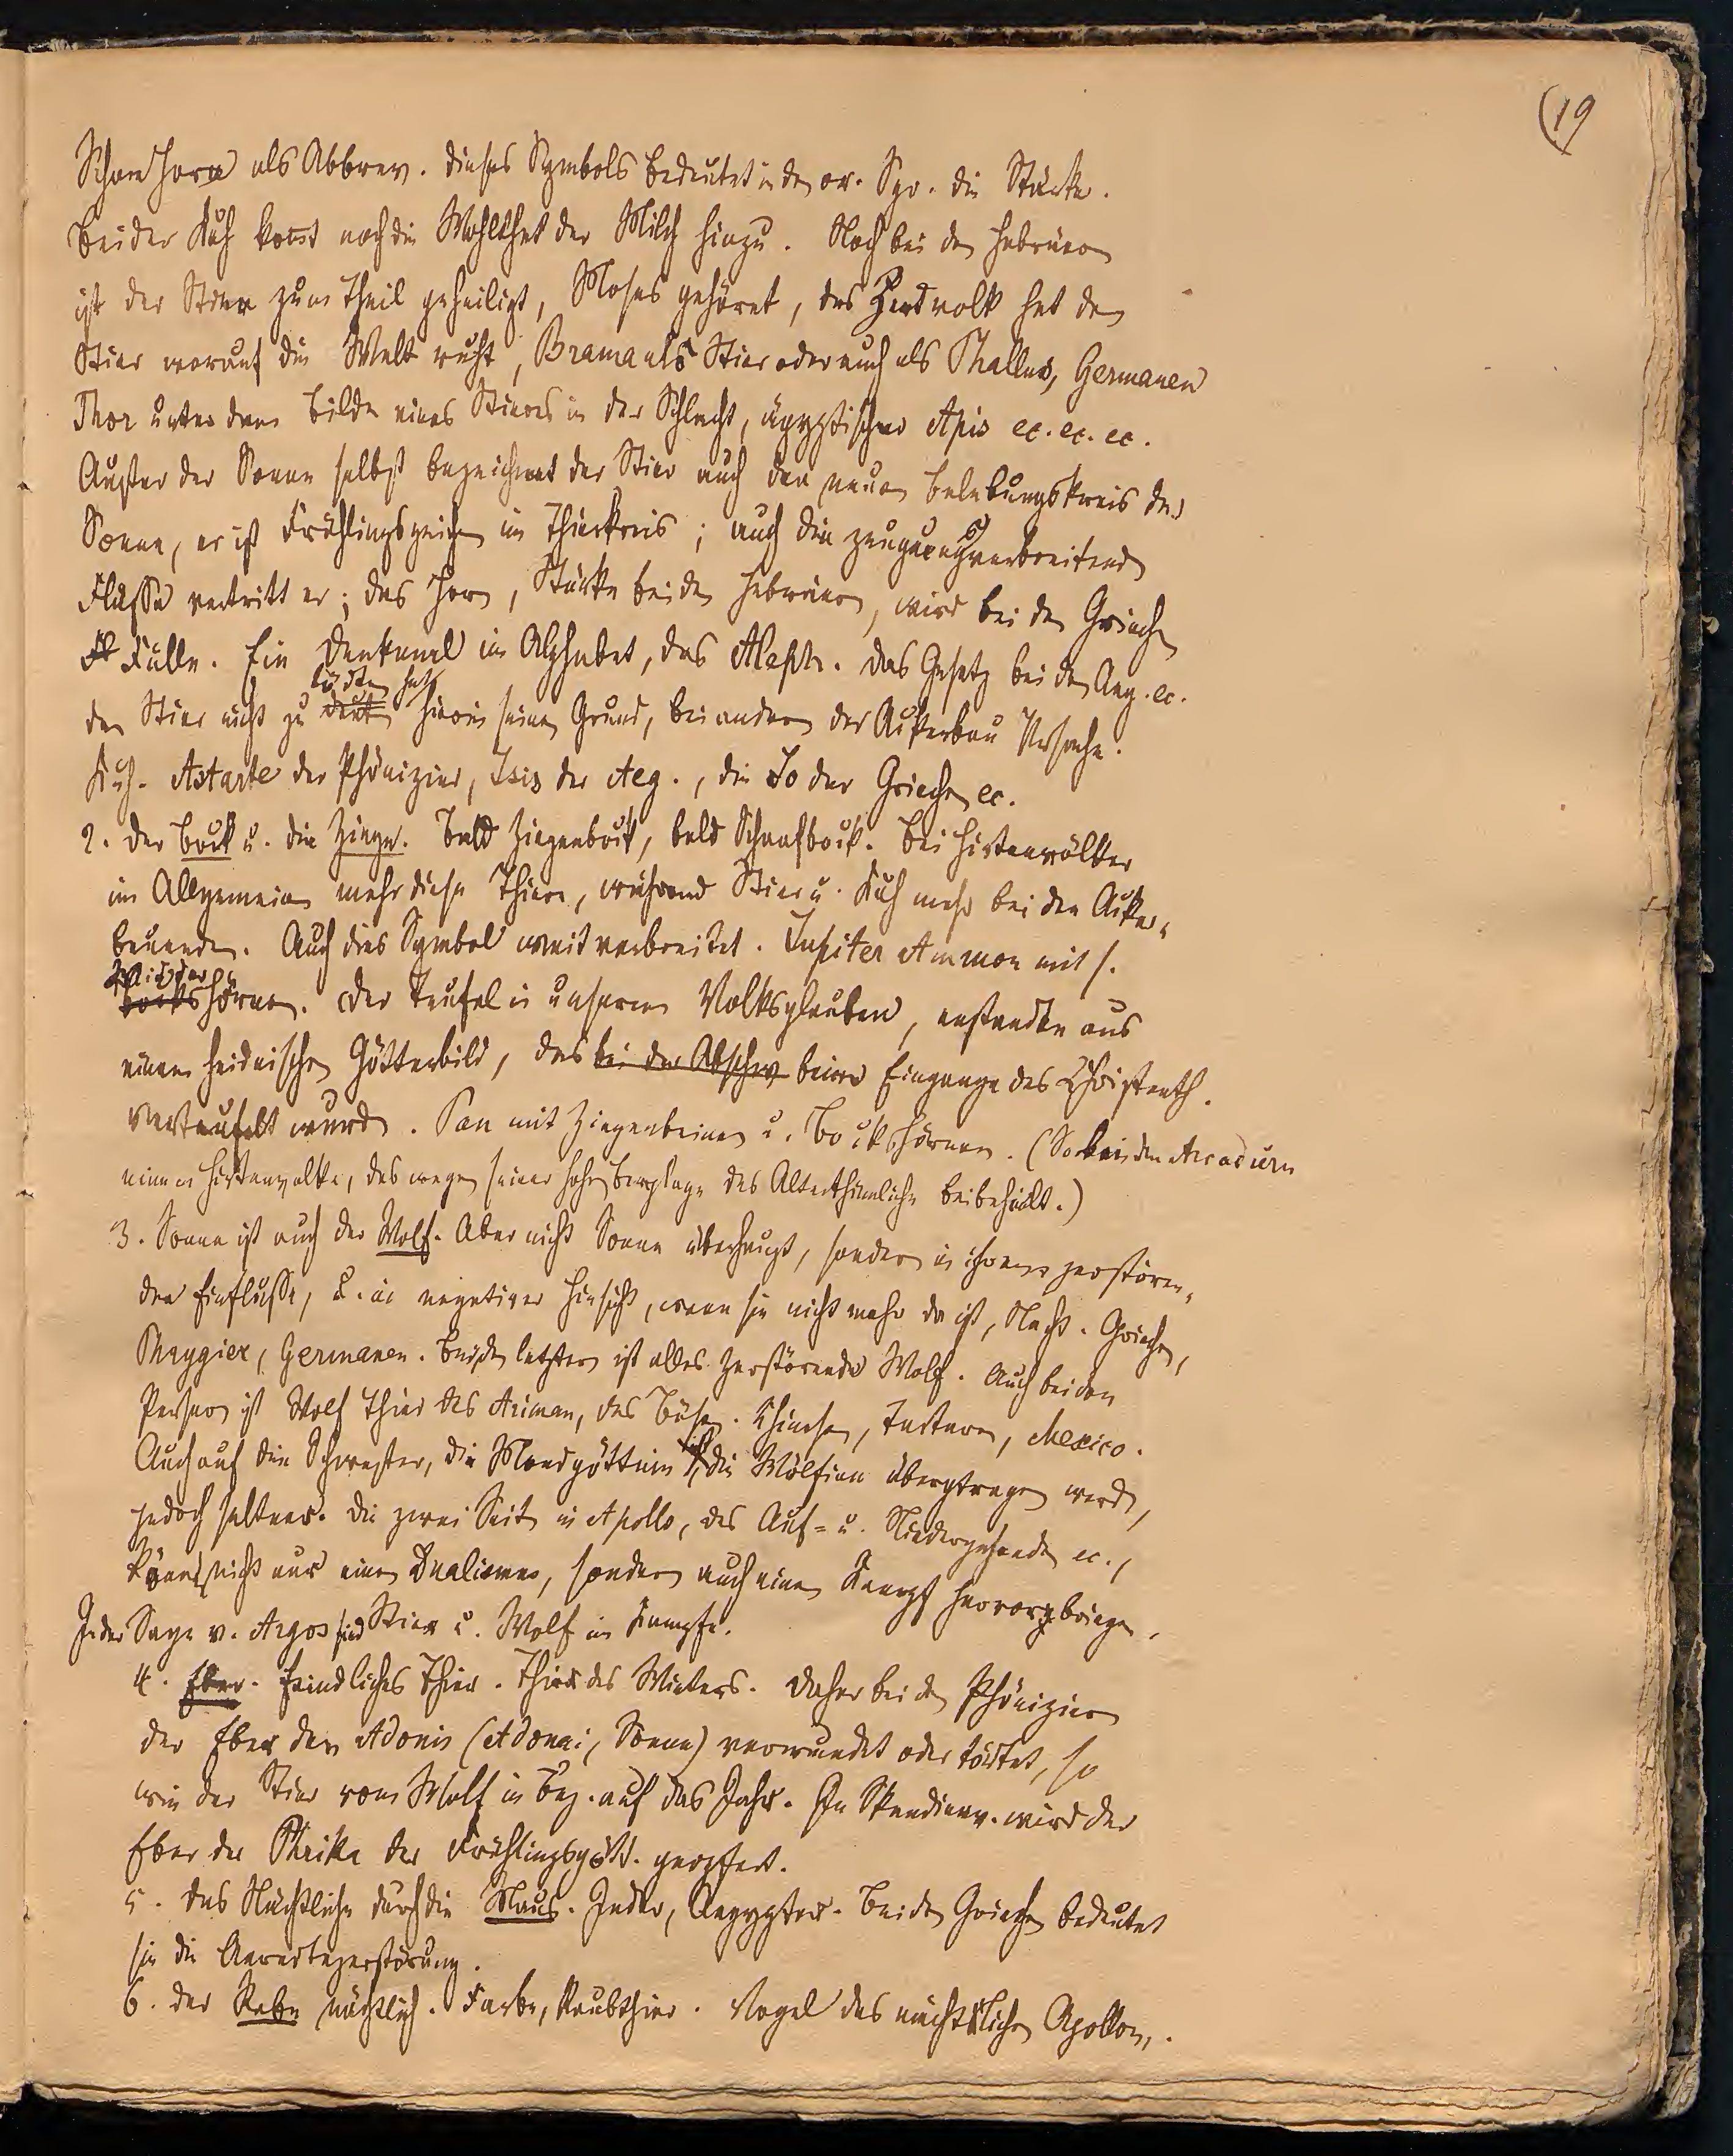 (19
Schon Horn als Abbrev. dieses Symbols bedeutet in den or. Spr. die Stärke.
Bei der Kuh kommt noch die Wohlthat der Milch hinzu. Noch bei den Hebräern
ist der Stier zum Theil geheiligt, Moses gehörnt, das Zendvolk hat den
Stier worauf die Welt ruht, Brama als Stier oder auch als Phallus, Germanen
Thor unter dem Bilde eines Stieres in der Schlacht, ägyptischer Apis ec. ec. ec.
Außer der Sonne selbst bezeichnet der Stier auch den neuen Belebungskreis der
Sonne, er ist Frühlingszeichen im Thierkreis; auch die zeugungsverbreitenden
Flüsse vertritt er; das Horn, Stärke bei den Hebräern, wird bei den Griechen
Fülle. Ein Denkmal im Alphabet, das Aleph. Das Gesetz bei den Aeg. ec.
den Stier nicht zu tödten hat hierin seinen Grund, bei andern der Ackerbau Ursache.
Kuh. Astarte der Phönizier, Isis der Aeg., die Io der Griechen ec.
2. Der Bock u. die Ziege. Bald Ziegenbock, bald Schaafbock. Bei Hirtenvölker
im Allgemeinen mehr diese Thiere, während Stier u. Kuh mehr bei den Acker-
bauenden. Auch dies Symbol weit verbreitet. Jupiter Ammon mit s.
Widder
bockshörnern. Der Teufel in unserem Volksglauben, enstanden aus
einem heidnischen Götterbild, das bei der Abschw beim Eingange des Christenth.
verteufelt wurde. Pan mit Ziegenbeinen u. Bockshörnern. (So bei den Arcadiern
einem Hirtenvolke, das wegen seiner hohen Berglage das Alterthümliche beibehielt.)
3. Sonne ist auch der Wolf. Aber nicht Sonne überhaupt, sondern in ihrem zerstören-
den Einflusse, u. in negativer Hinsicht, wenn sie nicht mehr da ist, Nacht. Griechen,
Phrygier, Germanen. Bei den letztern ist alles Zerstörende Wolf. Auch bei den
Persern ist Wolf Thier des Ariman, des Bösen. Chinesen, Tartaren, Mexico.
Auch auf die Schwester, die Mondgöttin ist die Wölfinn übergtragen worden,
jedoch seltner. Die zwei Seiten in Apollo, des Auf- u. Niedergehenden ec.,
können nicht nur einen Dualismus, sondern auch einen Kampf hervorbringen.
In der Sage v. Argos sind Stier u. Wolf im Kampfe.
4. Eber. Feindliches Thier. Thier des Winters. Daher bei den Phöniziern
der Eber den Adonis (Adonai, Sonne) verwundet oder tödtet, so
wie der Stier vom Wolf in Bez. auf das Jahr. In Skandinav. wird der
Eber der Phrika der Frühlingsgött. geopfert.
5. Das Nächtliche durch die Maus. Inder, Aegypter. Bei den Griechen bedeutet
sie die Aerntezerstörung.
6. Der Rabe nächtlich. Farbe, Raubthier. Vogel des nächtlichen Apollon.